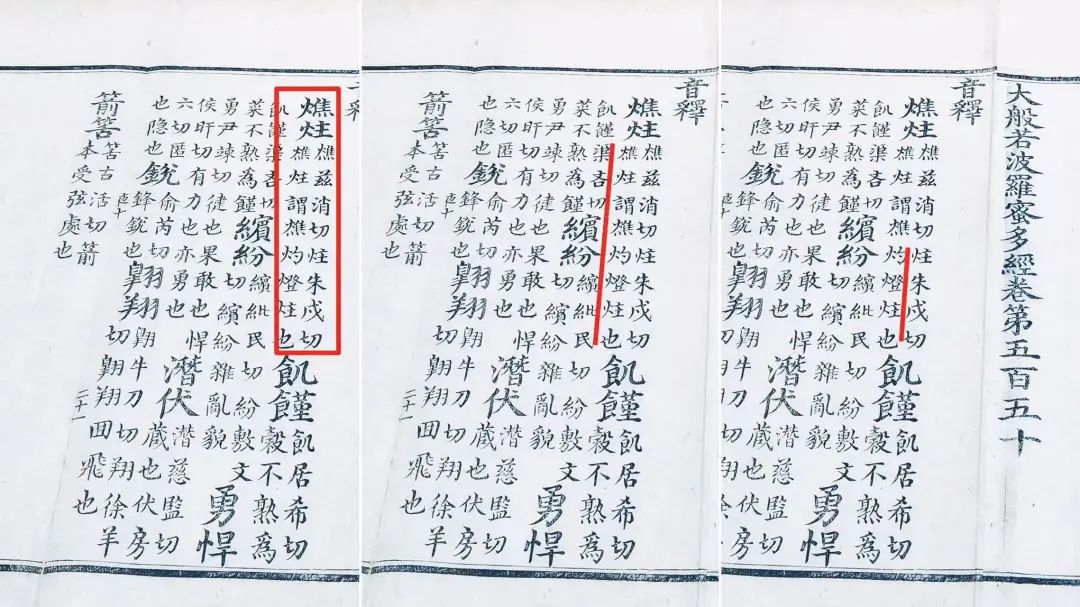 燋炷燋兹消切炷朱戍切燋炷謂燋灼燈炷也飢饉飢居希切穀不熟為
飢饉渠吝切菜不熟為饉繽紛繽紕民切紛敷文切繽紛雜亂貌勇悍
勇尹竦切徤也果敢也悍侯旰切有力也亦勇也潛伏潛慈監切藏也伏房
六切匿也隱也銳俞芮切鋒銳也翺翔翺牛刀切翔徐羊切翺翔回飛也
箭筈筈古活切箭本受弦處也
二十一
音釋
燋炷燋兹消切炷朱戍切燋炷謂燋灼燈炷也飢饉飢居希切穀不熟為
飢饉渠吝切菜不熟為饉繽紛繽紕民切紛敷文切繽紛雜亂貌勇悍
勇尹竦切徤也果敢也悍侯旰切有力也亦勇也潛伏潛慈監切藏也伏房
六切匿也隱也銳俞芮切鋒銳也翺翔翺牛刀切翔徐羊切翺翔回飛也
箭筈筈古活切箭本受弦處也
二十一
大般若波羅蜜多經卷第五百五十
音釋
燋炷燋兹消切炷朱戍切燋炷謂燋灼燈炷也飢饉飢居希切穀不熟為
飢饉渠吝切菜不熟為饉繽紛繽紕民切紛敷文切繽紛雜亂貌勇悍
勇尹竦切徤也果敢也悍侯旰切有力也亦勇也潛伏潛慈監切藏也伏房
六切匿也隱也銳俞芮切鋒銳也翺翔翺牛刀切翔徐羊切翺翔回飛也